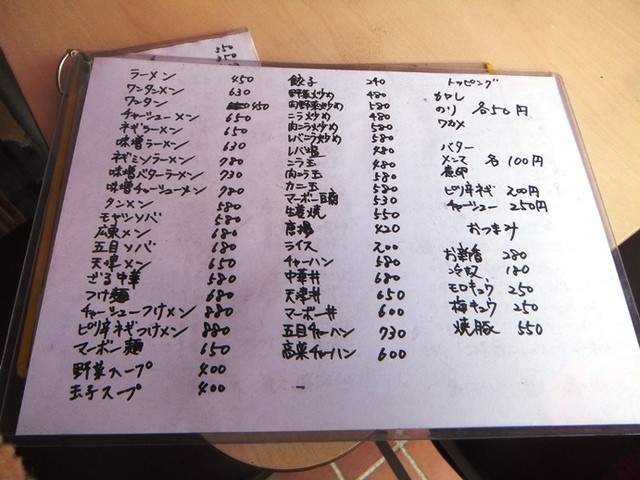 350
ラーメン 450
ワンタンメン 630
ワンタン 450
チャーシューメン 650
ネギラーメン 650
味噌ラーメン 630
ネギミソラーメン 780
味噌バターラーメン 730
味噌チャーシューメン 780
タンメン 580
モヤシソバ 580
広東メン 680
五目ソバ 680
天津メン 650
ざる中華 580
つけ麺 680
チャーシューつけメン 880
ピリ辛ネギつけメン 880
マーボー麺 650
野菜スープ 400
玉子スープ 400
餃子 240
野菜炒め 480
肉野菜炒め 580
ニラ炒め 480
肉ニラ炒め 580
レバニラ炒め 580
480
ニラ玉 480
肉ニラ玉 580
カニ玉 580
マーボー豆腐 530
生姜焼 550
420
ライス 200
チャーハン 580
中華丼 680
天津丼 650
マーボー丼 600
五目チャーハン 730
高菜チャーハン 600
トッピング
モヤシ
のり 各50円
ワカメ
バター
メンマ 各100円
ピリ辛ネギ 200円
チャーシュー 250円
おつまみ
お新香 280
冷奴 180
モロキュウ 250
梅キュウ 250
焼豚 550